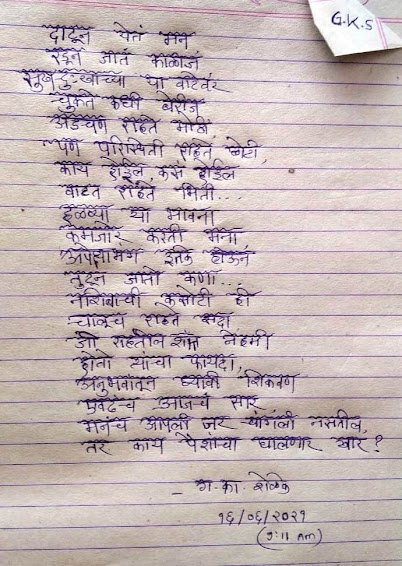 G.K.S
दाटून येतं मन
रडून जातं काळीजं
सुख दुःखाच्या या वाटेवर
चुकते कधी बेरीज
अडचण राहते मोठी
पण परिस्थिती राहते छोटी,
काय होईल, कसं होईल
वाटत राहते भिती...,
हळव्या या भावना
कमजोर करती मना,
अपयामंग इतके होऊन
तुटून जातो कणा...
नशिबाची कसोटी ही
चालूच राहते सदा
जो राहतील शांत नेहमी
होतो त्यांचा फायदा,
अनुभवातून घ्यावी शिकवण
एवढंच आजचं सार
मनंच आपली जर चांगली नसतील,
तर काय पैशाचा घालणार खार ?
- ग. का. शेळके
१६/०६/२०२१
(9:11 Am)